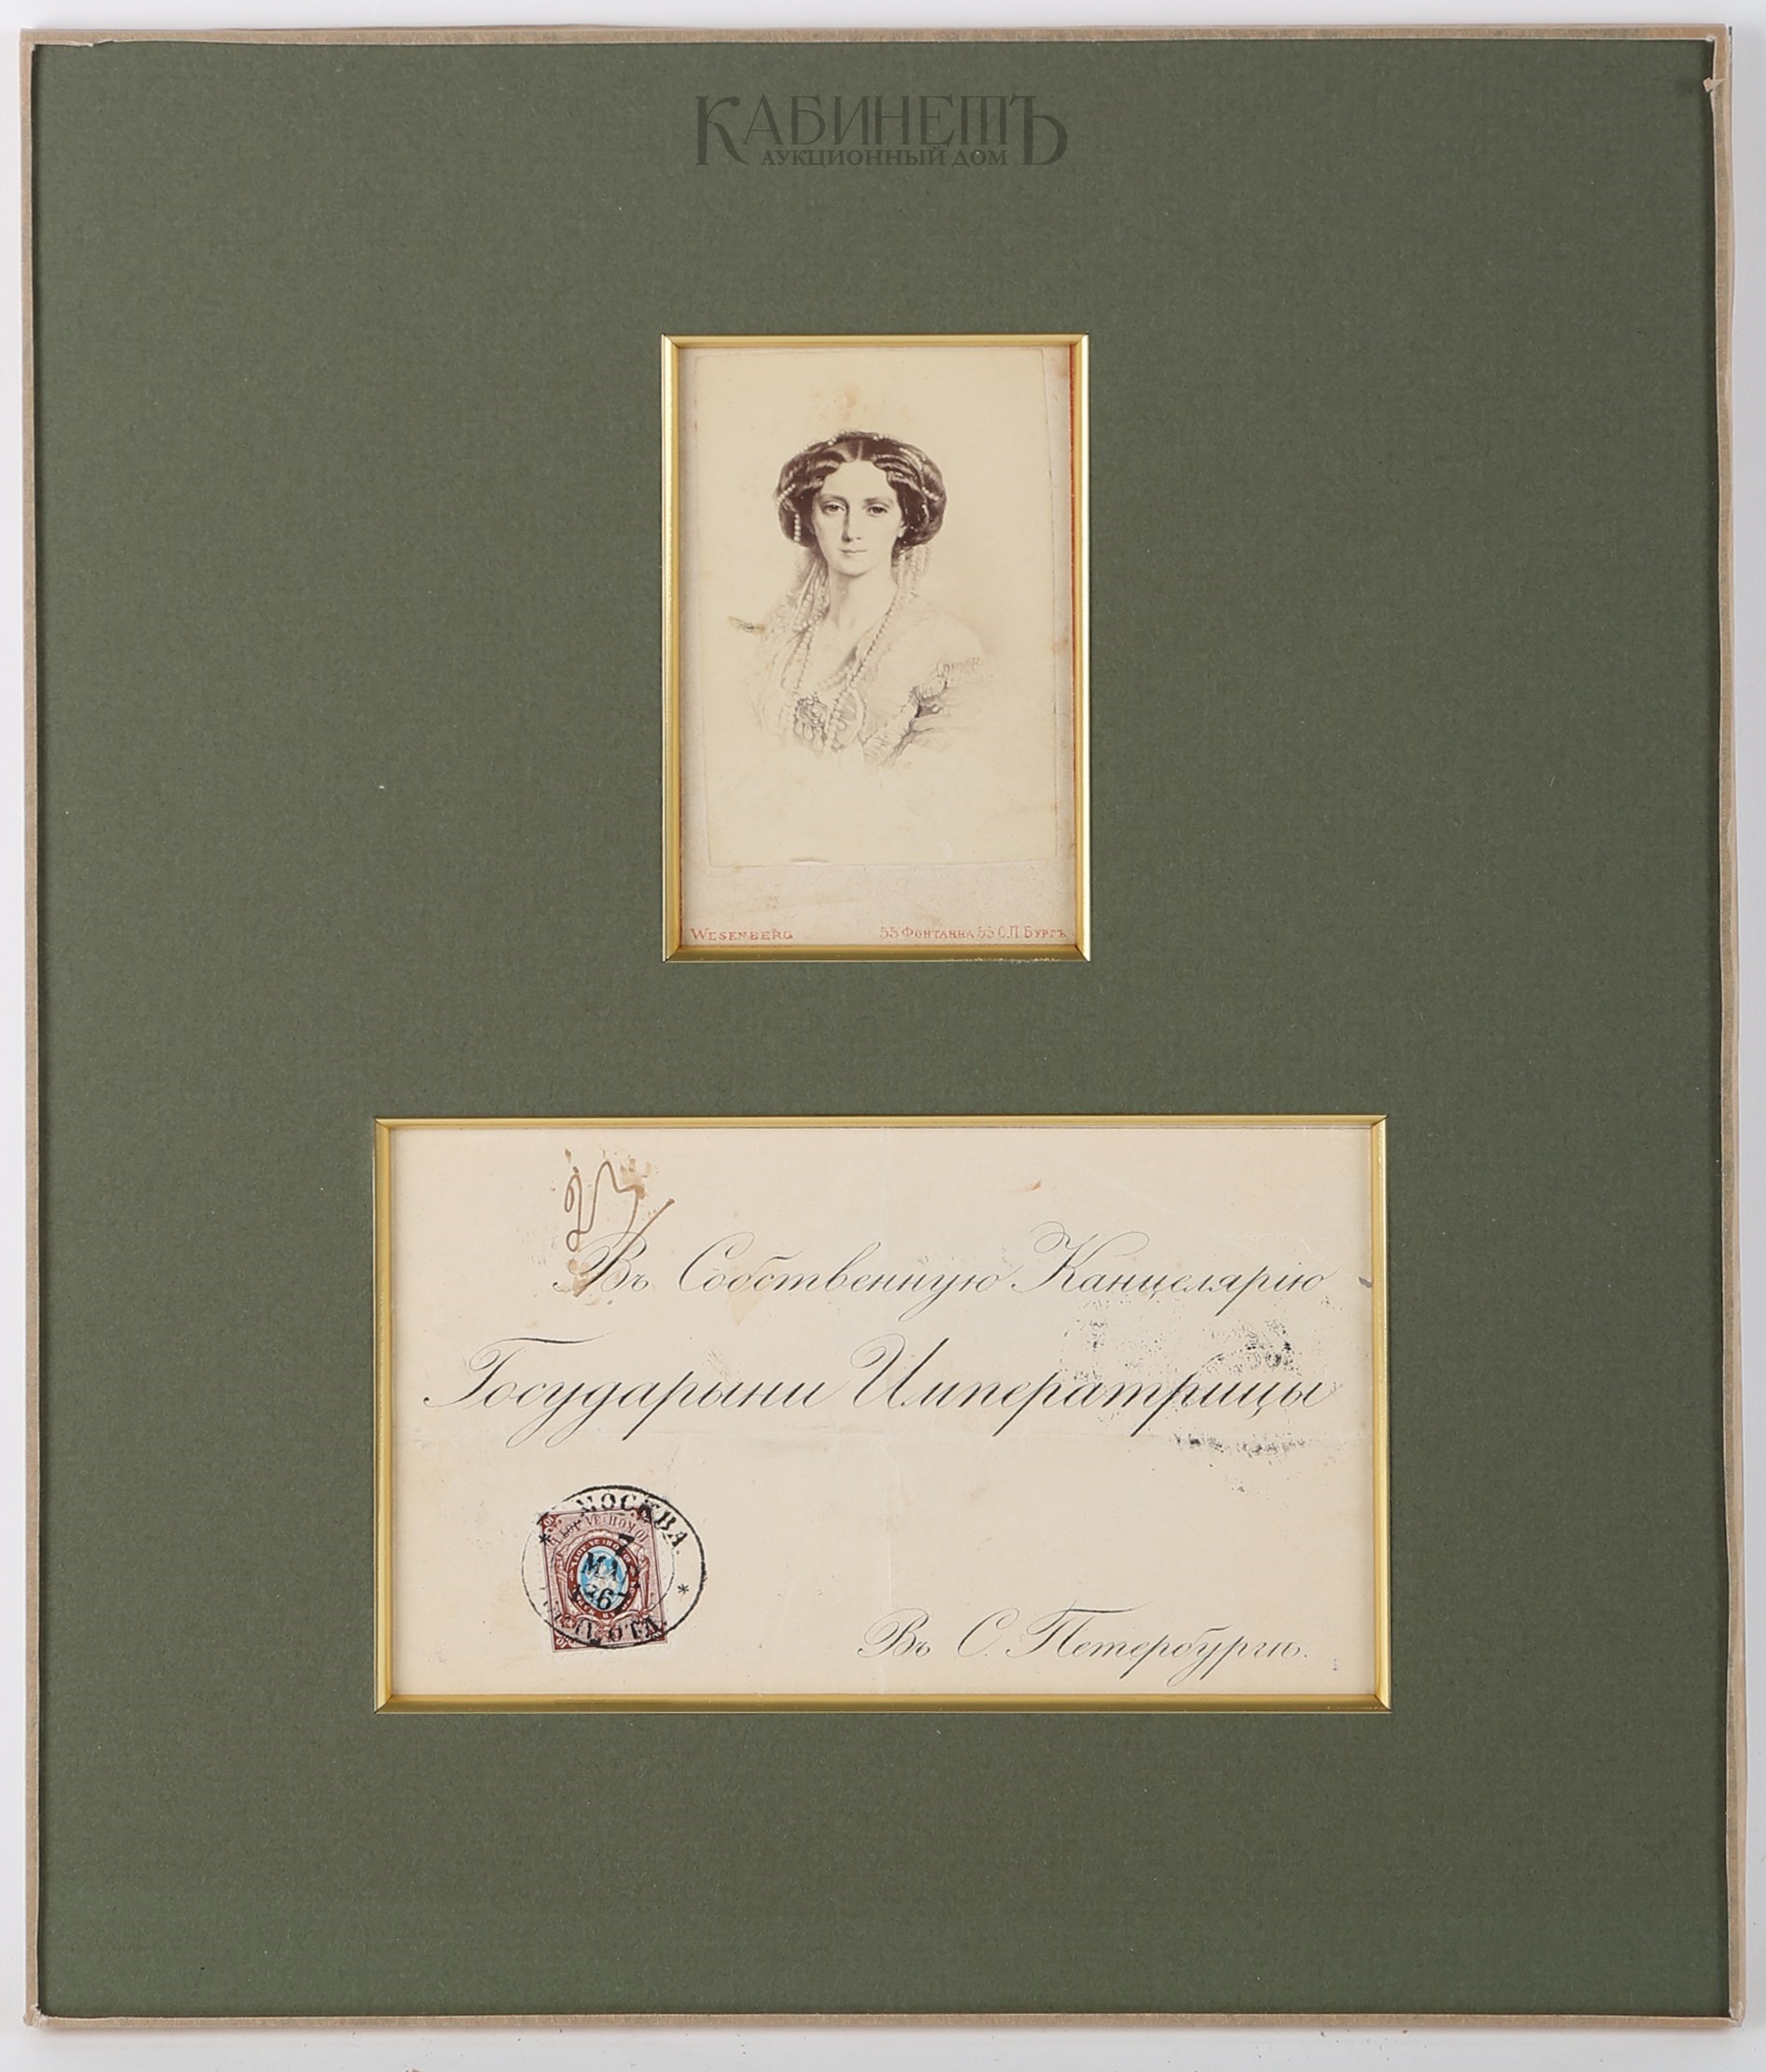 КАБИНЕТЪ
АУКЦИОННЫЙ ДОМ
WESENBERG 55 ФОНТАНКА 55 С.П БУРГЪ
23
Въ Собственную Канцелярію
Государыни Императрицы
МОСКВА
7
МАЯ
Въ С. Петербургъ.